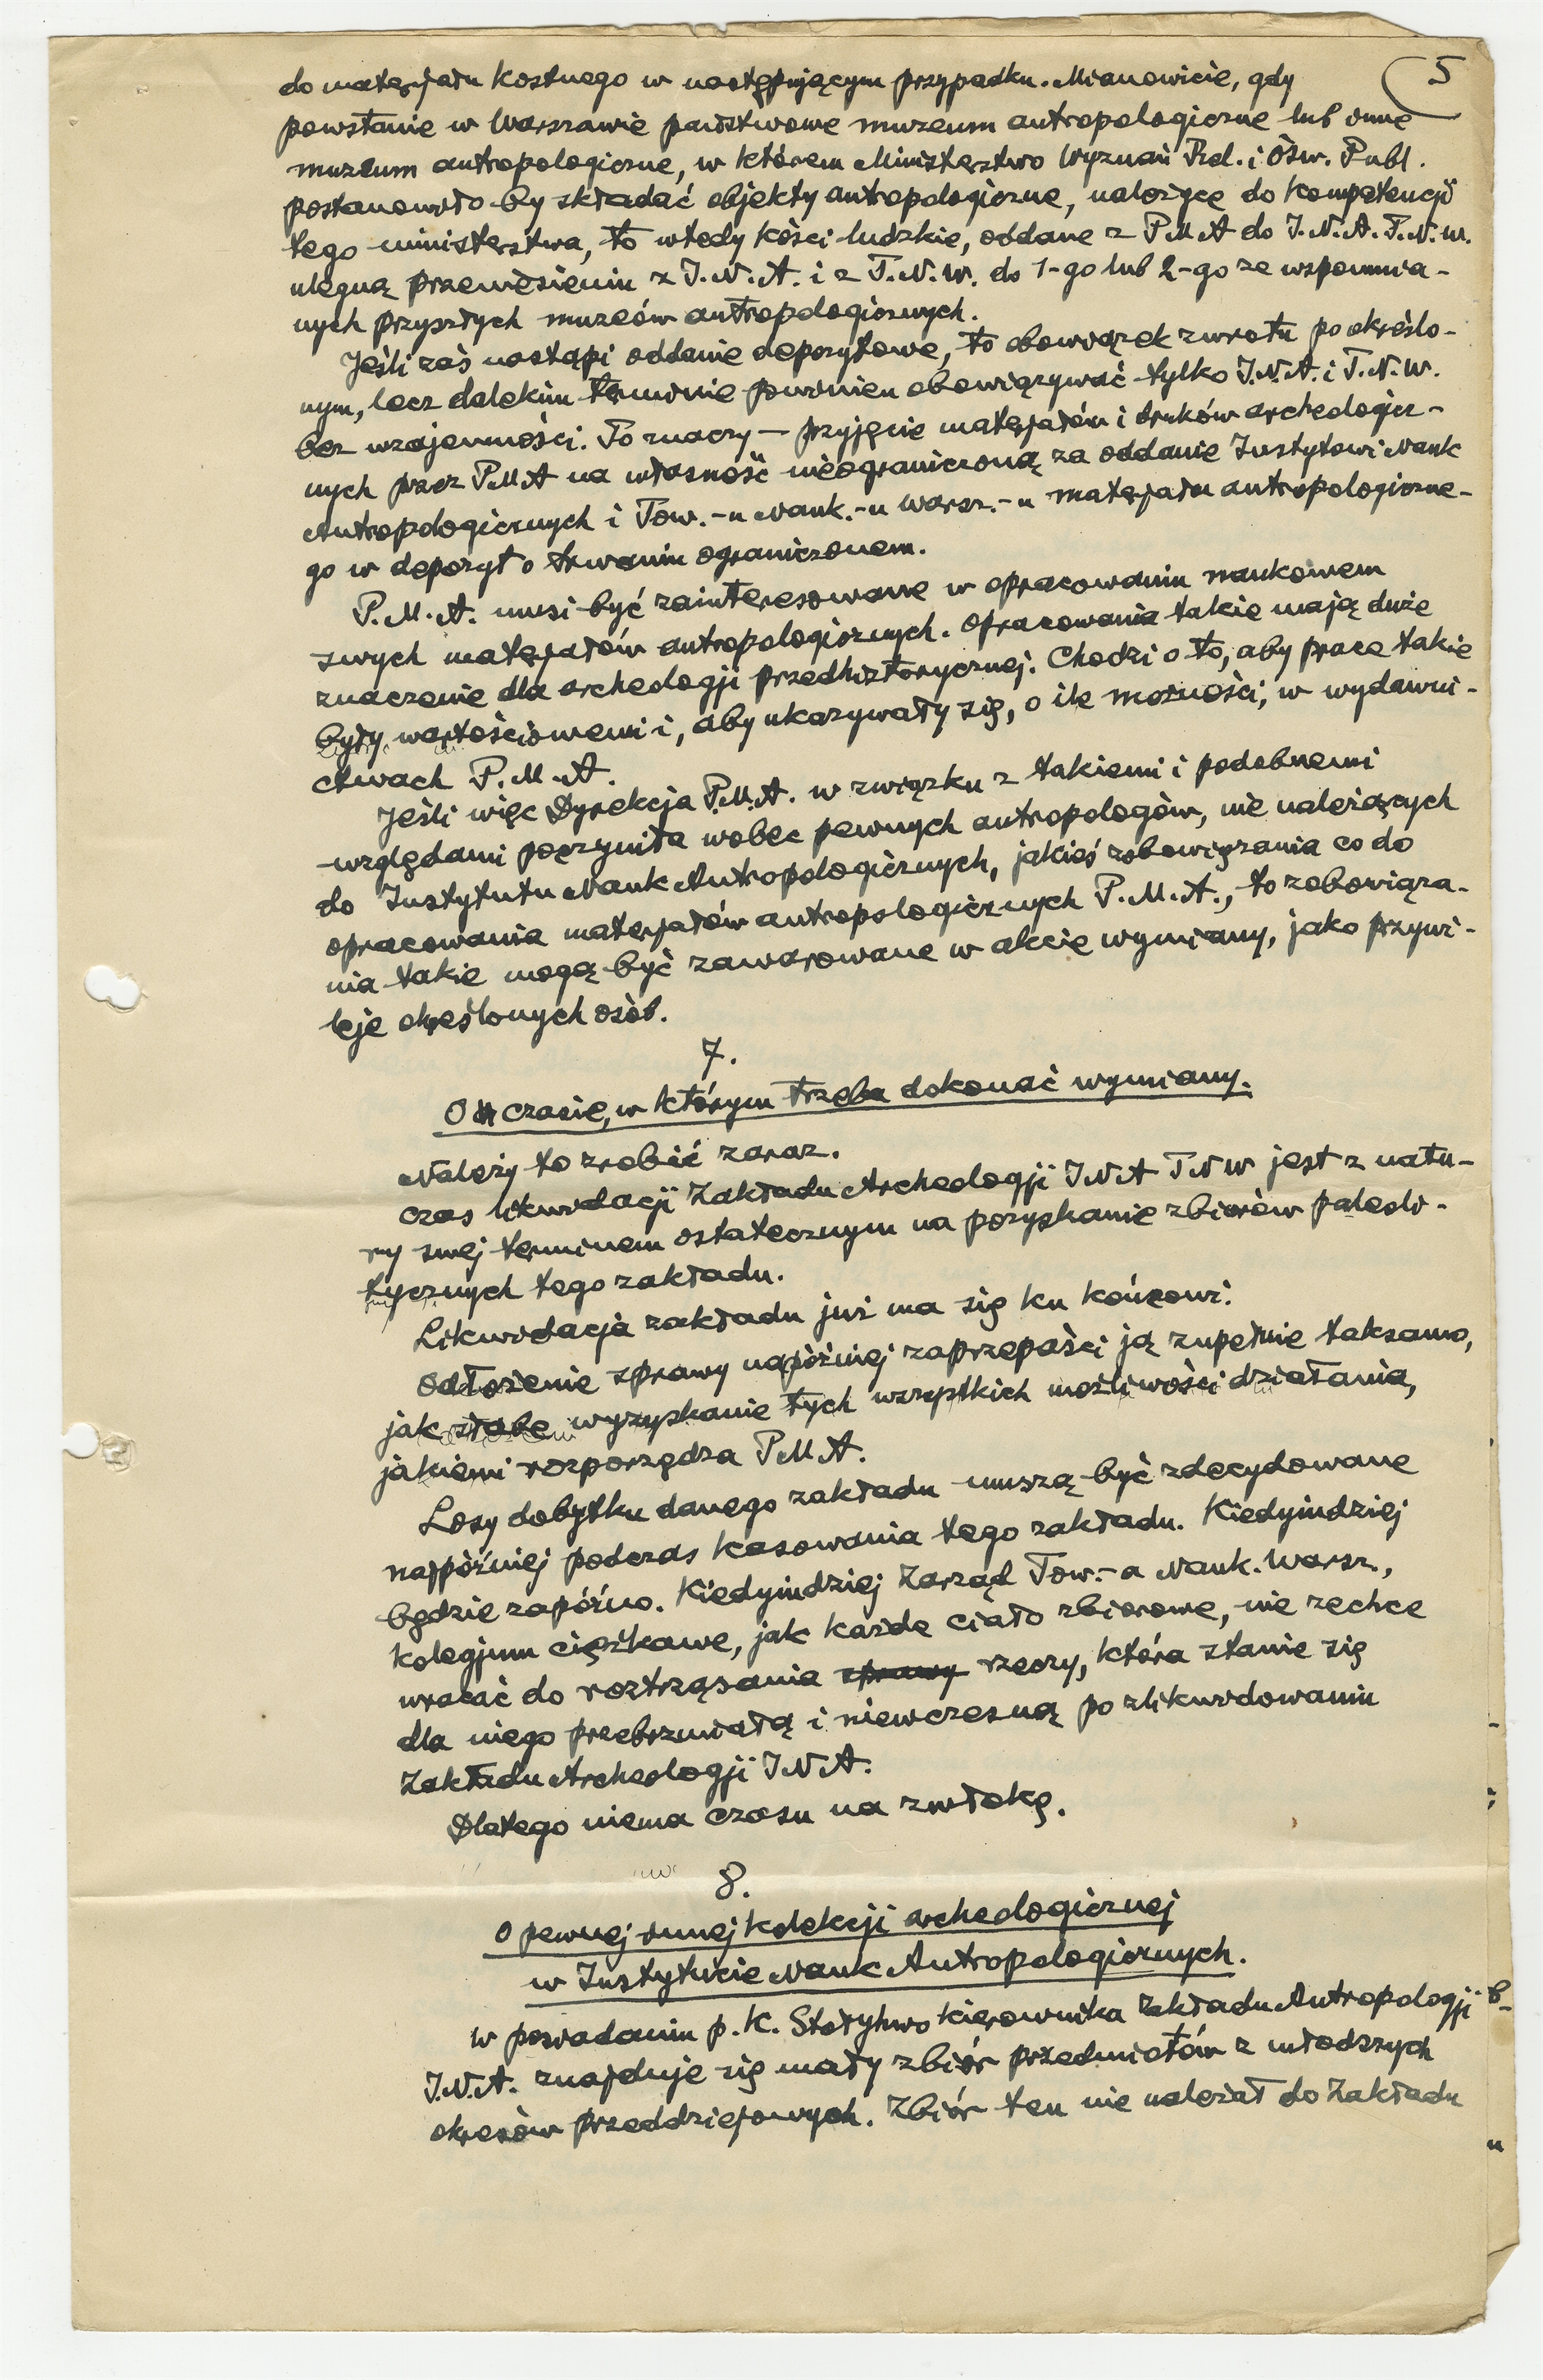 5
do materjału kostnego w następującym przypadku. Mianowicie, gdy
powstanie w Warszawie państwowe muzeum antropologiczne lub inne
muzeum antropologiczne, w którem Ministerstwo Wyznań Rel. i Ośw. Publ.
postanowiło by składać objekty antropologiczne, należące do kompetencji
tego ministerstwa, to wtedy kości ludzkie, oddane z PMA do I.N.A.T.N.W.
ulegną przeniesieniu z I.N.A. i z T.N.W. do 1-go lub 2-go ze wspomnia-
nych przyszłych muzeów antropologicznych.
Jeśli zaś nastąpi oddanie depozytowe, to obowiązek zwrotu po określo-
nym, lecz dalekim terminie powinien obowiązywać tylko I.N.A. i T.N.W.
bez wzajemności. To znaczy — przyjęcie materjałów i druków archeologicz-
nych przez PMA na własność nieograniczoną za oddanie Instytowi Nauk
Antropologicznych i Tow.-u Nauk.-u Warsz.-u materjału antropologiczne-
go w depozyt o trwaniu ograniczonem.
P.M.A. musi być zainteresowane w opracowaniu naukowem
swych materjałów antropologicznych. Opracowania takie mają duże
znaczenie dla archeologji przedhistorycznej. Chodzi o to, aby prace takie
były wartościowemi i, aby ukazywały się, o ile możności, w wydawni-
ctwach P.M.A.
Jeśli więc Dyrekcja P.M.A. w związku z takiemi i podobnemi
względami poczyniła wobec pewnych antropologów, nie należących
do Instytutu Nauk Antropologicznych, jakieś zobowiązania co do
opracowania materjałów antropologicznych P.M.A., to zobowiąza-
nia takie mogą być zawarowane w akcie wymiany, jako przywi-
leje określonych osób.
7.
O czasie, w którym trzeba dokonać wymiany.
Należy to zrobić zaraz.
Czas likwidacji Zakładu Archeologji INA TNW jest z natu-
ry swej terminem ostatecznym na pozyskanie zbiorów paleoli-
tycznych tego zakładu.
Likwidacja zakładu już ma się ku końcowi.
Odłożenie sprawy najpóźniej zaprzepaści ją zupełnie taksamo,
jak słabe wyzyskanie tych wszystkich możliwości działania,
jakiemi rozporządza PMA.
Losy dobytku danego zakładu muszą być zdecydowane
najpóźniej podczas kasowania tego zakładu. Kiedyindziej
będzie zapóźno. Kiedyindziej Zarząd Tow.-a Nauk. Warsz.,
kolegjum ciężkawe, jak każde ciało zbiorowe, nie zechce
wracać do roztrząsania sprawy rzeczy, która stanie się
dla niego przebrzmiałą i niewczesną po zlikwidowaniu
Zakładu Archeologji INA.
Dlatego niema czasu na zwłokę.
8.
O pewnej innej kolekcji archeologicznej
w Instytucie Nauk Antropologicznych.
W posiadaniu p. K. Stołyhwo kierownika Zakładu Antropologji
I.N.A. znajduje się mały zbiór przedmiotów z młodszych
okresów przeddziejowych. Zbiór ten nie należał do Zakładu